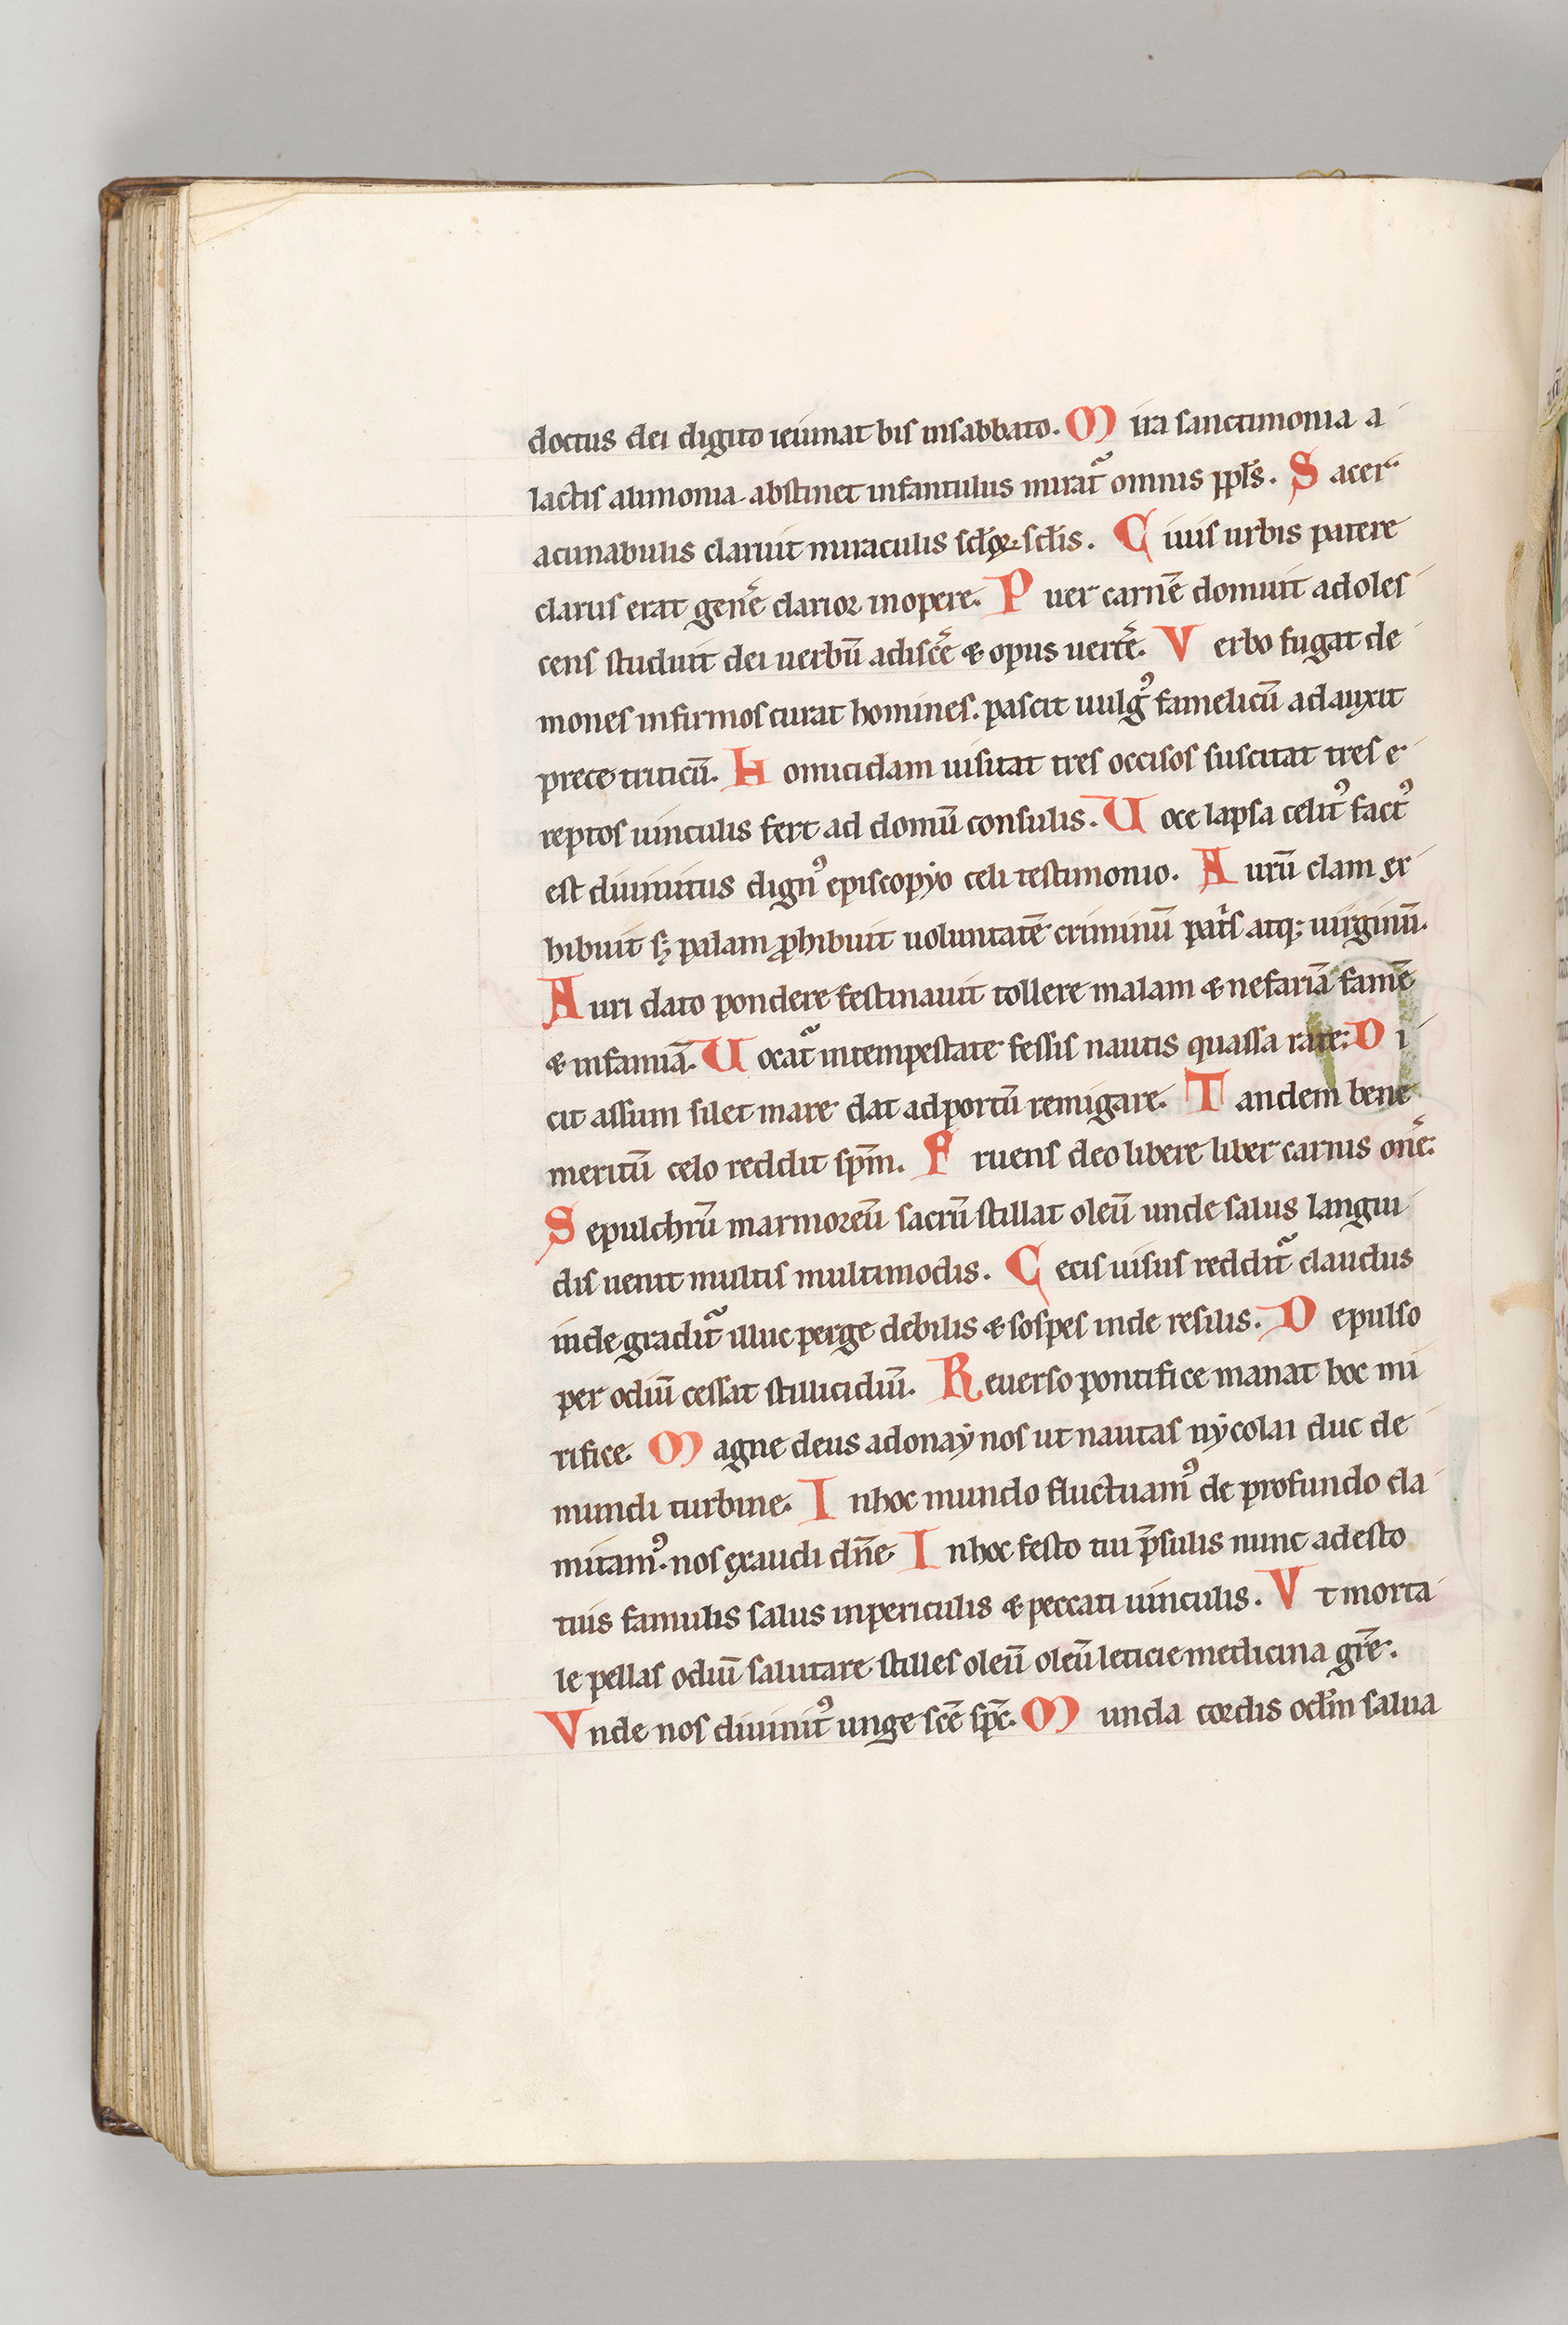 doctus dei digito ieiunat bis insabbato. Mira sanctimonia a
lactis alimonia. abstinet infantulus mirat᷑ omnis ppl̄s. Sacer
acunabulis claruit miraculis scl̄oꝝ. scl̄is. Ciuis urbis patere
clarus erat gene͛ clarior inopere. Puer carnē domuit adoles
cens studuit dei uerbū adisce͛ & opus uerte͛. Verbo fugat de
mones infirmos curat homines. pascit uulgꝰ famelicū adauxit
prece triticū. Homicidam uisitat tres occisos suscitat tres e
reptos uinculis fert ad domū consulis. Uoce lapsa celitꝰ factꝰ
est diuinitus dignꝰ episcopyo celi testimonio. Aurū clam ex
hibuit sꝫ palam ꝓhibuit uoluntatē criminū pat͛s atqꝫ uirginū.
Auri dato pondere festinauit tollere malam & nefariā famē
& infamiā. Uocat᷑ intempestate fessis nautis quassa rate: Di
cit assum silet mare dat adportū remigare. Tandem bene
meritū celo reddit sp̄m. Fruens deo libere liber carnis one͛.
Sepulchrū marmoreū sacrū stillat oleū unde salus langui
dis uenit multis multimodis. Cecis uisus reddit᷑ claudus
inde gradit᷑ illuc perge debilis & sospes inde resilis. Depulso
per odiū cessat stillicidiū. Reuerso pontifice manat hoc mi
rifice. Magne deus adonaẏ nos ut nautas nẏcolai duc de
mundi turbine. Inhoc mundo fluctuamꝰ de profundo cla
mitamꝰ. nos exaudi dn̄e. Inhoc festo tui p̄sulis nunc adesto
tuis famulis salus inpericulis & peccati uinculis. Vt morta
le pellas odiū salutare stilles oleū oleū leticie medicina gr̄e.
Vnde nos diuinitꝰ unge scē spc̄. Munda cordis od̄m salua